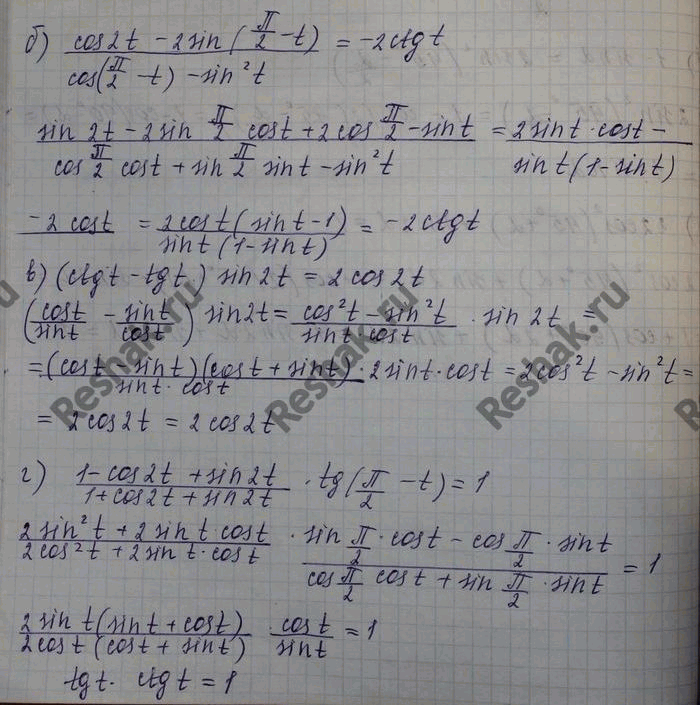 б) (cos2t - 2sin(π/2 - t))/(cos(π/2 - t) - sin²t) = -2ctg t
(sin 2t - 2sin π/2 cost + 2cos π/2 - sint)/(cos π/2 cost + sin π/2 sint - sin²t) = (2sint·cost -)/(sint(1-sint))
(-2cost) = (2cost(sint-1))/(sint(1-sint)) = -2ctgt
в) (ctgt - tgt) sin2t = 2cos2t
(cost/sint - sint/cost) sin2t = (cos²t - sin²t)/(sint·cost) · sin 2t =
= ((cost - sint)(cost + sint))/(sint·cost) · 2sint·cost = 2cos²t - sin²t =
= 2cos2t = 2cos2t
г) (1-cos2t + sin2t)/(1+cos2t + sin2t) · tg(π/2 - t) = 1
(2sin²t + 2sint·cost)/(2cos²t + 2sint·cost) · (sin π/2 · cost - cos π/2 · sint)/(cos π/2 cost + sin π/2 · sint) = 1
(2sint(sint + cost))/(2cost(cost + sint)) · cost/sint = 1
tgt · ctgt = 1
Reshak.ru
Reshak.ru
Reshak.ru